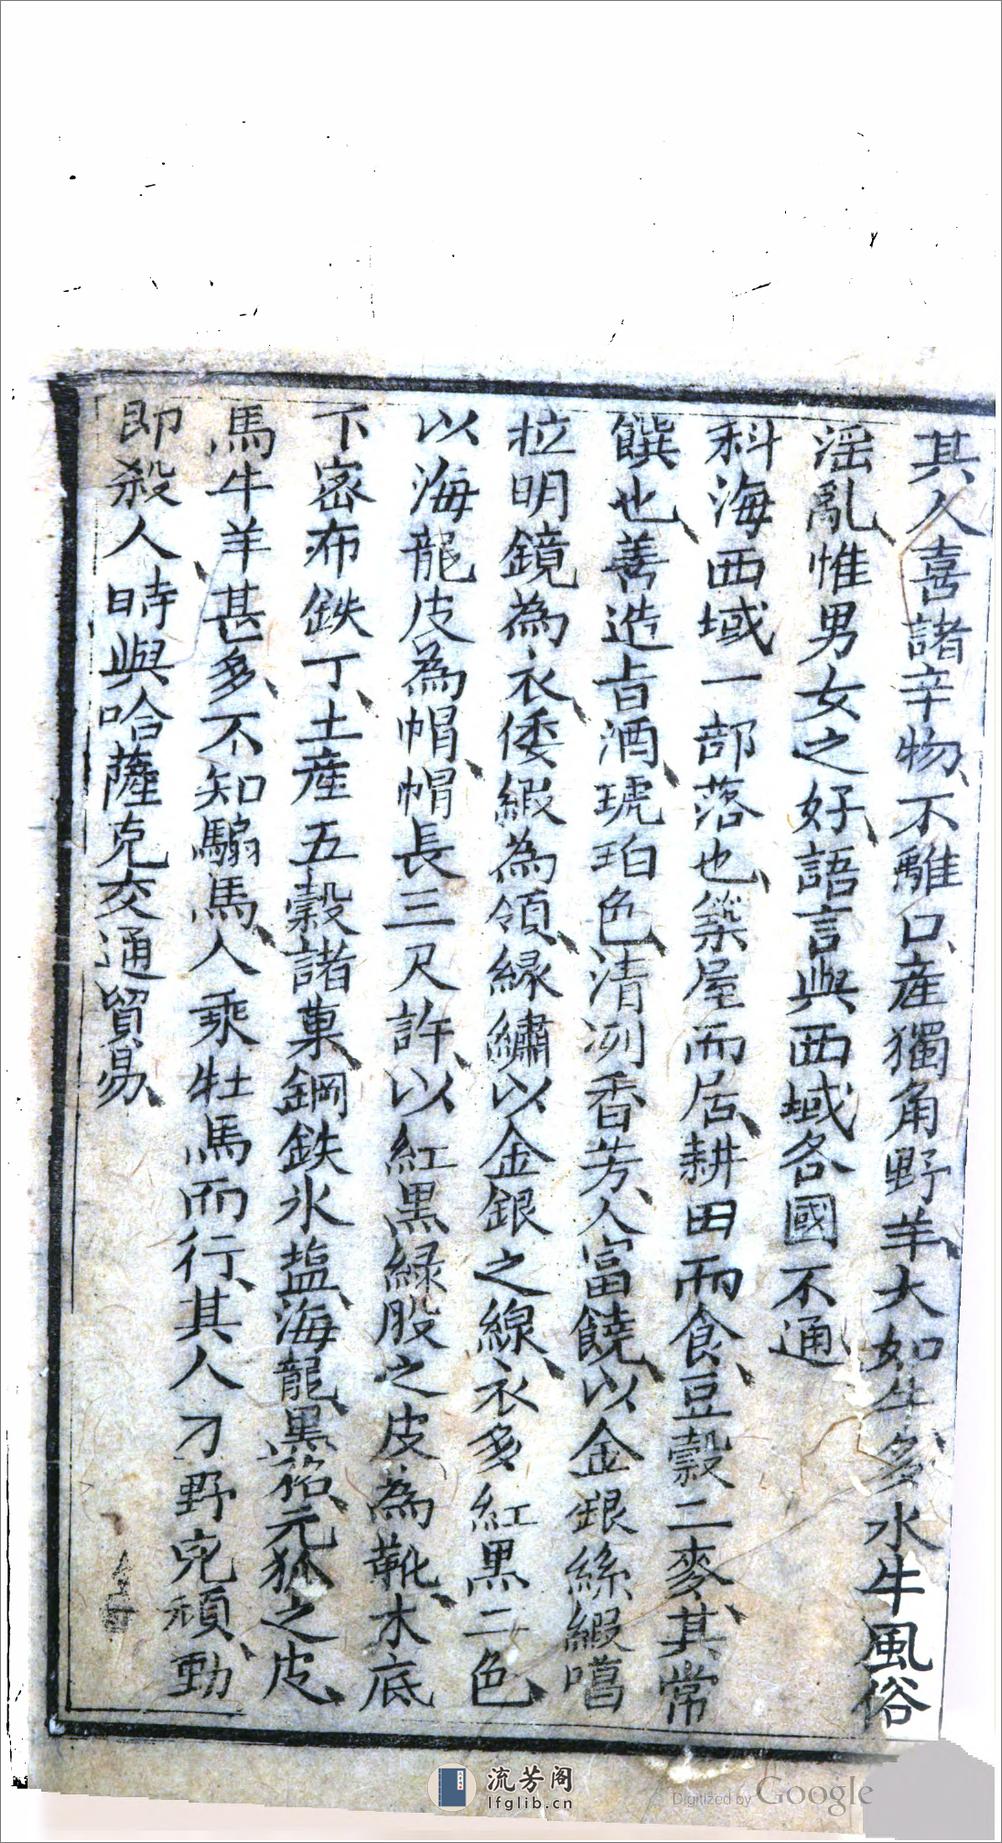 其人喜諸辛物、不離口、産獨角野羊、大如牛、多水牛風俗
滛亂惟男女之好、語言與西域各國不通
科海西域一部落也、築屋而居、耕田而食、豆穀二麥、其常
饌也、善造旨酒、琥珀色、清冽香芳、人富饒、以金銀絲緞噶
拉明鏡為衣、倭緞為領、緣繡以金銀之線、衣多紅黑二色、
以海龍皮為帽、帽長三尺許、以紅黑緑股之皮為靴、木底
下密布鉄丁、土産五穀諸菓、鋼鉄水塩、海龍、黑狐、元狐之皮、
馬牛羊甚多、不知騸馬、人乘牡馬而行、其人刁野兇頑、動
即殺人、時與哈薩克交通貿易、
流芳阁
lfglib.cn
Digitized by Google